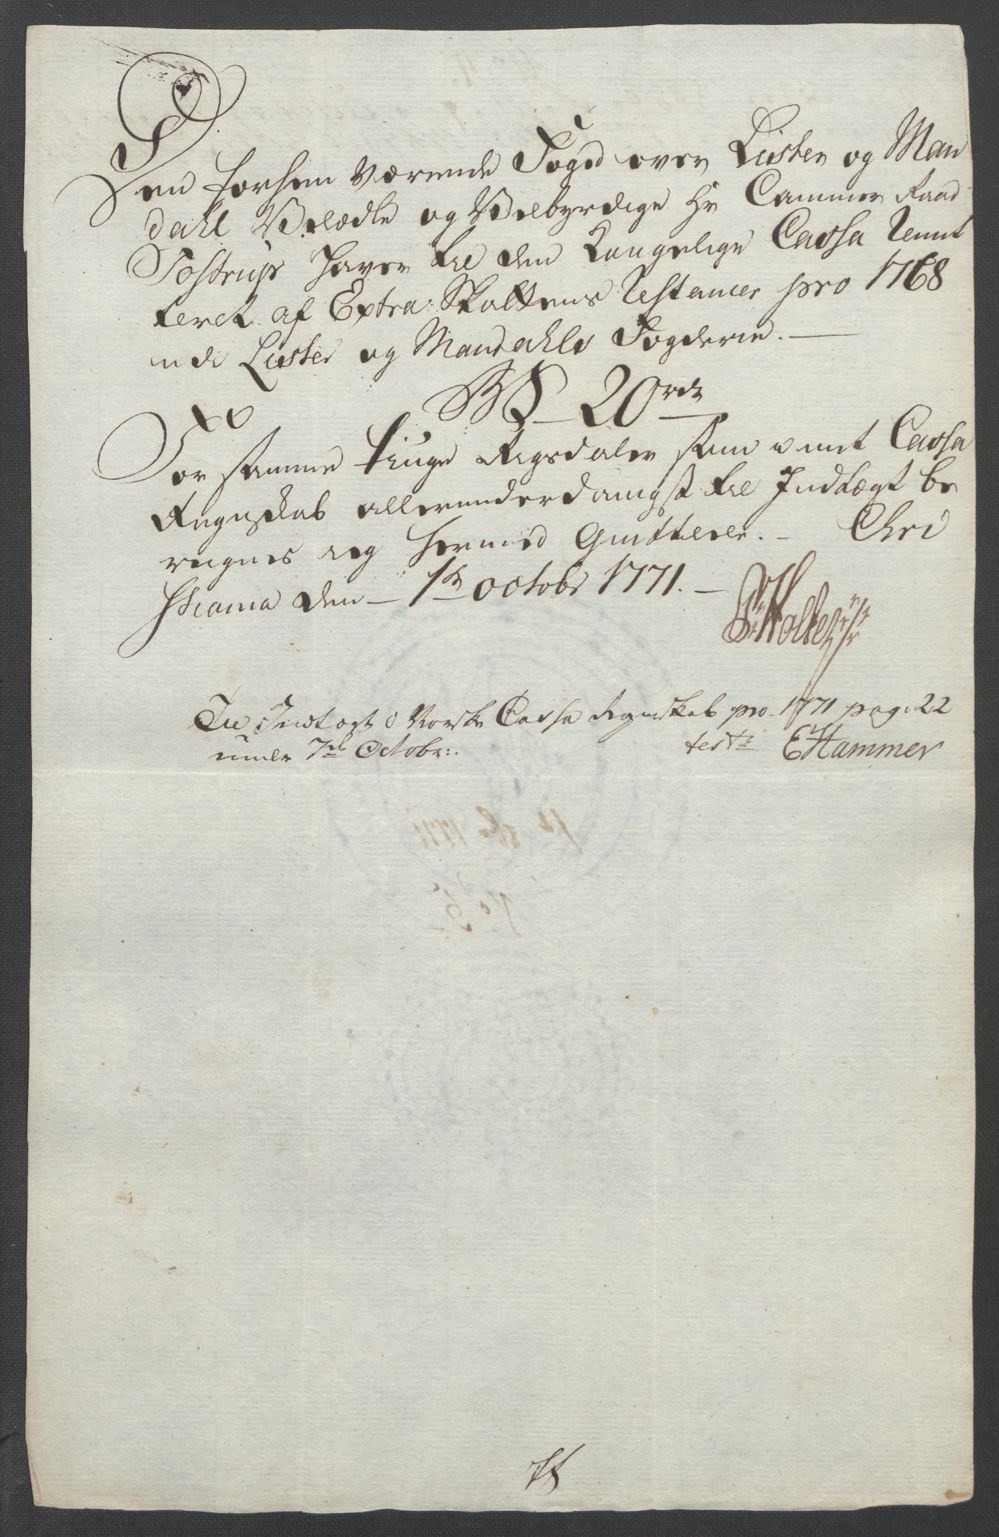 Den forhen værende Foged over Lister og Man
dahl Vel ædle og Velbyrdige Hr Cammer Raad
Tostrup haver til den Kongelige Cassa Remit
teret af Extra: Skattens Restancer pro 1768
udi Lister og Mandahls Fogderie. —
20 rdr
For samme tiuge Rigsdaler som venter Cassa
Regnskab allerunderdanigst til Indtægt be
reignes ieg hermed Quitterer. – Chri
stiania den – 1te octobr 1771. –
Holte
Til Indtægt i Norske Cassa Regnskab pro. 1771 pag. 22
under 7de Octobr:.
test: E Hammer